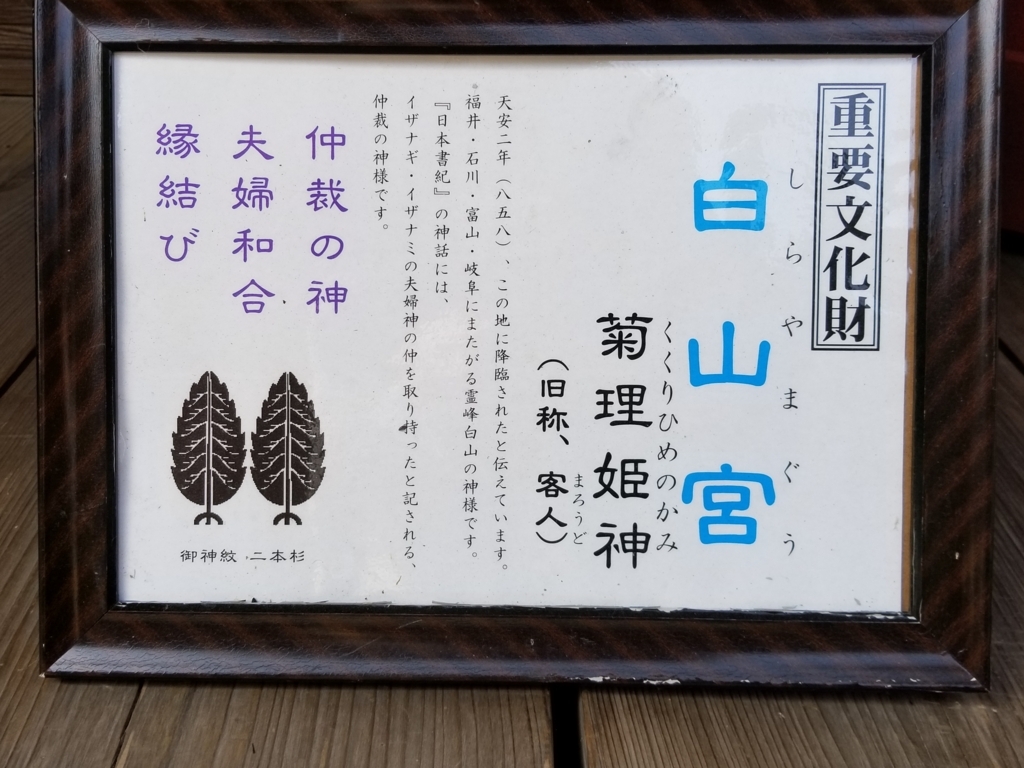 重要文化財
しらやまぐう
白山宮
くくりひめのかみ
菊理姫神
まろうど
（旧称、客人）
天安二年（八五八）、この地に降臨されたと伝えています。
福井・石川・富山・岐阜にまたがる霊峰白山の神様です。
『日本書紀』の神話には、
イザナギ・イザナミの夫婦神の仲を取り持ったと記される、
仲裁の神様です。
仲裁の神
夫婦和合
縁結び
御神紋 二本杉